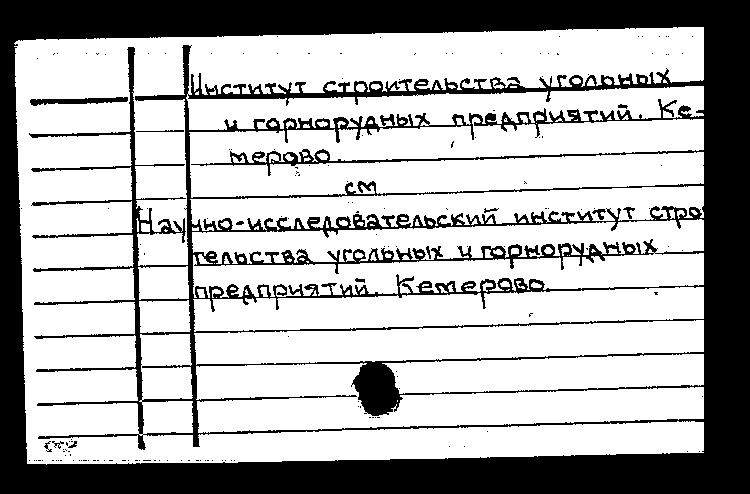 Институт строительства угольных
и горнорудных предприятий. Ке-
мерово.
см
Научно-исследовательский институт стро
тельства угольных и горнорудных
предприятий. Кемерово.